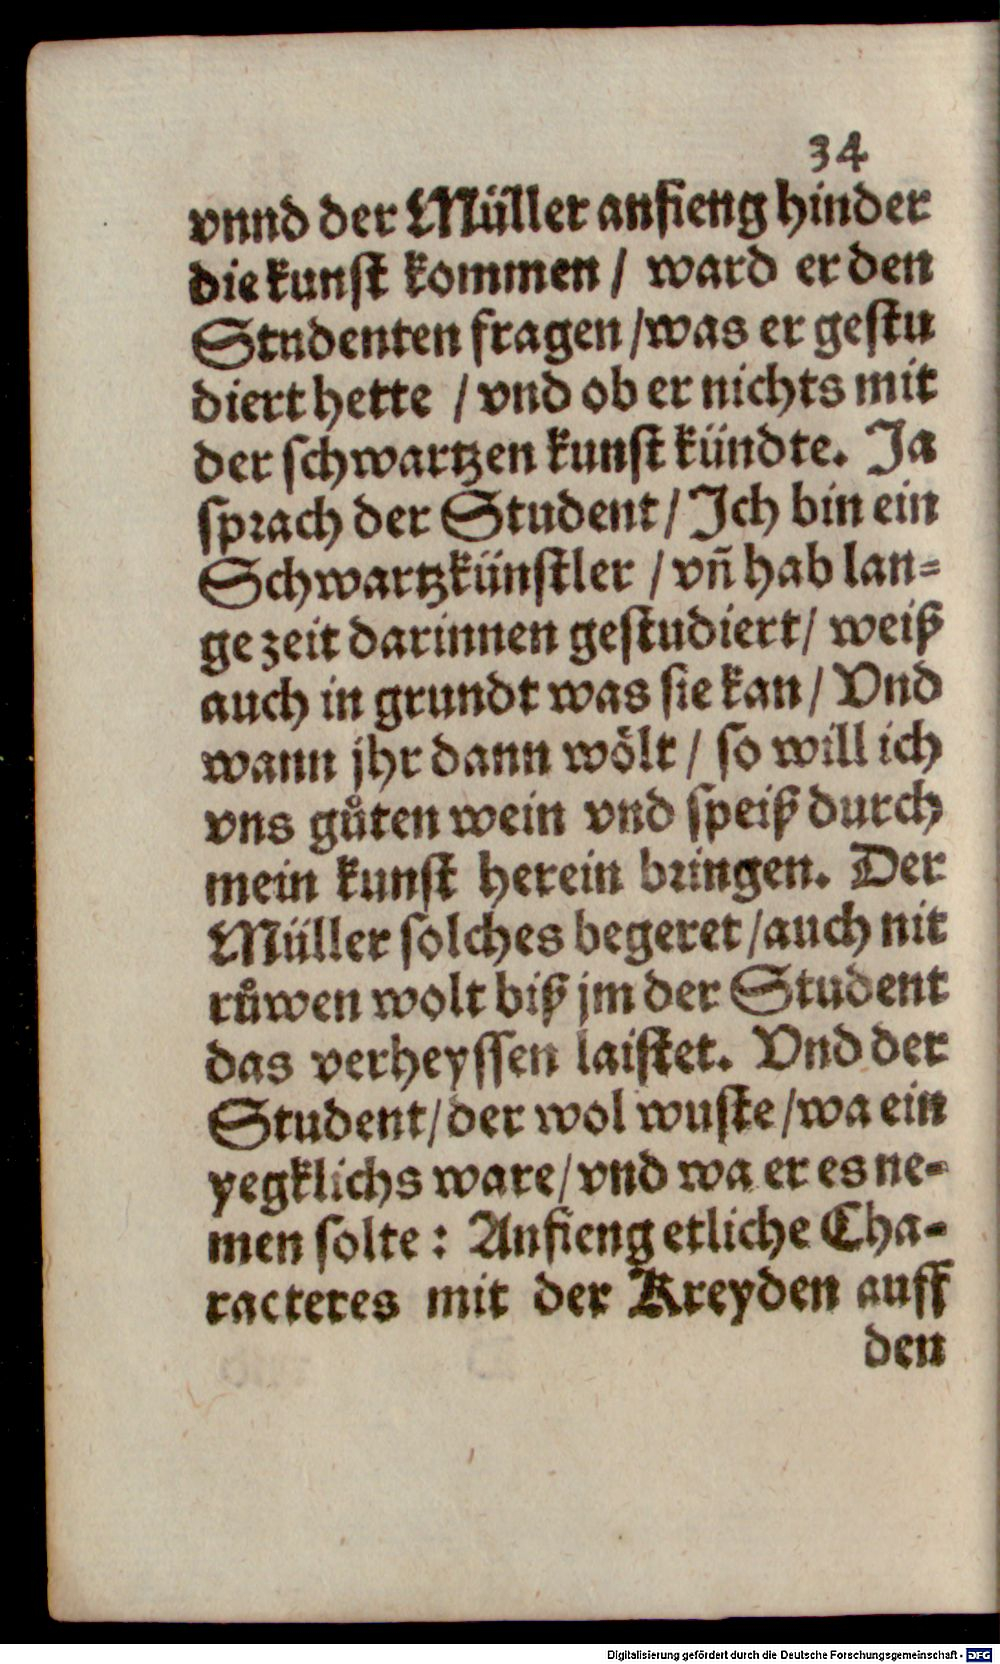 34
vnnd der Müller anfieng hinder
die kunst kommen / ward er den
Studenten fragen / was er gestu
diert hette / vnd ob er nichts mit
der schwartzen kunst kündte. Ja
sprach der Student / Ich bin ein
Schwartzkünstler / vn̄ hab lan-
ge zeit darinnen gestudiert / weiß
auch in grundt was sie kan / Vnd
wann jhr dann woͤlt / so will ich
vns guͦten wein vnd speiß durch
mein kunst herein bringen. Der
Müller solches begeret / auch nit
ruͦwen wolt biß jm der Student
das verheyssen laistet. Vnd der
Student / der wol wuste / wa ein
yegklichs ware / vnd wa er es ne-
men solte : Anfieng etliche Cha-
racteres mit der Kreyden auff
den
Digitalisierung gefördert durch die Deutsche Forschungsgemeinschaft - DFG